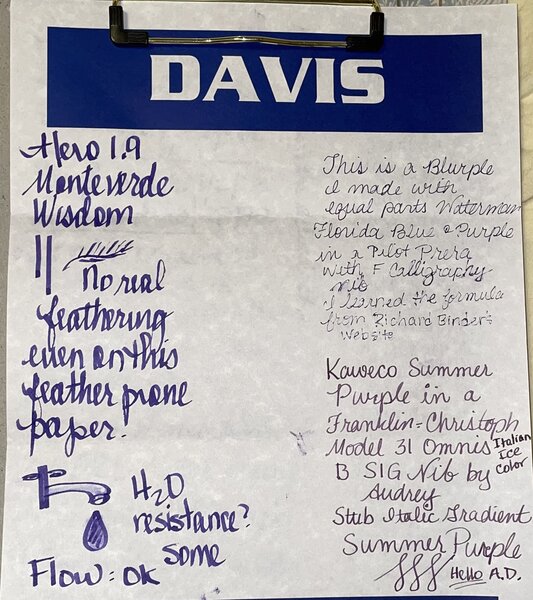 DAVIS
Hero 1.9
Monteverde
Wisdom
No real
feathering
even on this
feather prone
paper!
H2O
resistance?
some
Flow: OK
This is a Blurple
I made with
equal parts Waterman
Florida Blue & Purple
in a Pilot Prera
with F Calligraphy
nib
I learned the formula
from Richard Binder's
Website
Kaweco Summer
Purple in a
Franklin-Christoph
Model 31 Omnis Italian
Ice
Color
B SIG Nib by
Audrey
Stub Italic Gradient
Summer Purple
Hello A.D.